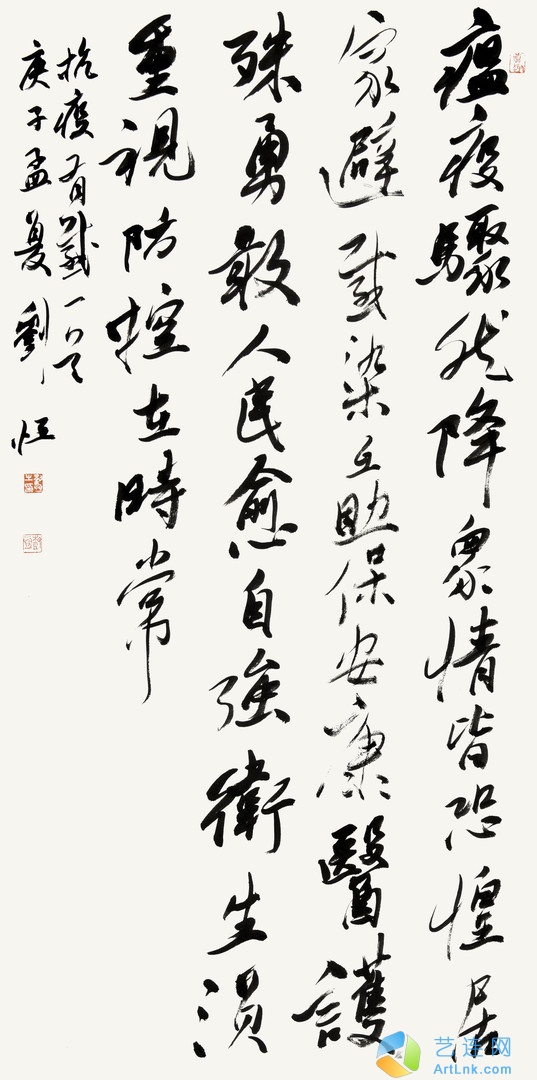 瘟疫驟然降衆情皆恐惶居
家避感染互助保安康醫護
殊勇敢人民愈自強衛生湏
重視防控在時常
抗疫有感一首
庚子孟夏劉恒
艺连网
ArtLnk.com